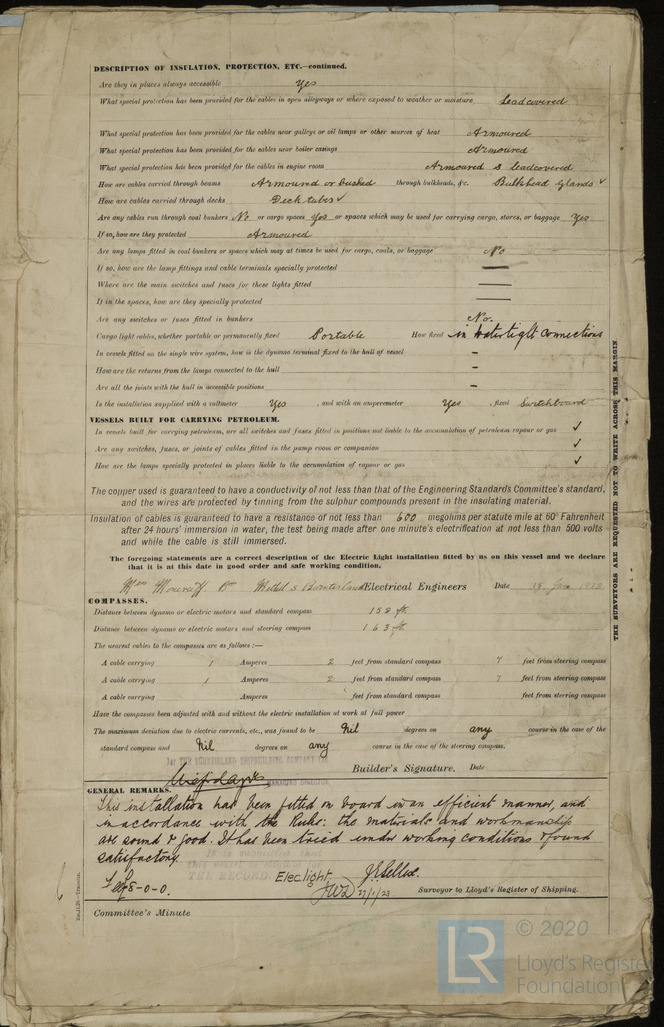 DESCRIPTION OF INSULATION, PROTECTION, ETC.—continued.
Are they in places always accessible Yes
What special protection has been provided for the cables in open alleyways or where exposed to weather or moisture Leadcovered
What special protection has been provided for the cables near galleys or oil lamps or other sources of heat Armoured
What special protection has been provided for the cables near boiler casings Armoured
What special protection has been provided for the cables in engine room Armoured & leadcovered
How are cables carried through beams Armound or bushed through bulkheads, &c. Bulkhead Glands ✓
How are cables carried through decks Deck tubes ✓
Are any cables run through coal bunkers No or cargo spaces Yes or spaces which may be used for carrying cargo, stores, or baggage Yes
If so, how are they protected Armoured
Are any lamps fitted in coal bunkers or spaces which may at times be used for cargo, coals, or baggage No
If so, how are the lamp fittings and cable terminals specially protected —
Where are the main switches and fuses for these lights fitted —
If in the spaces, how are they specially protected —
Are any switches or fuses fitted in bunkers No.
Cargo light cables, whether portable or permanently fixed Portable How fixed in watertight connections
In vessels fitted on the single wire system, how is the dynamo terminal fixed to the hull of vessel –
How are the returns from the lamps connected to the hull –
Are all the joints with the hull in accessible positions –
Is the installation supplied with a voltmeter Yes, and with an amperemeter Yes, fixed Switchboard
VESSELS BUILT FOR CARRYING PETROLEUM.
In vessels built for carrying petroleum, are all switches and fuses fitted in positions not liable to the accumulation of petroleum vapour or gas ✓
Are any switches, fuses, or joints of cables fitted in the pump room or companion ✓
How are the lamps specially protected in places liable to the accumulation of vapour or gas ✓
The copper used is guaranteed to have a conductivity of not less than that of the Engineering Standards Committee's standard,
and the wires are protected by tinning from the sulphur compounds present in the insulating material.
Insulation of cables is guaranteed to have a resistance of not less than 600 megohms per statute mile at 60° Fahrenheit
after 24 hours' immersion in water, the test being made after one minute's electrification at not less than 500 volts
and while the cable is still immersed.
The foregoing statements are a correct description of the Electric Light installation fitted by us on this vessel and we declare
that it is at this date in good order and safe working condition.
Methil & Burntisland Electrical Engineers Date
COMPASSES.
Distance between dynamo or electric motors and standard compass 158 ft
Distance between dynamo or electric motors and steering compass 163 ft
The nearest cables to the compasses are as follows:—
A cable carrying 1 Amperes 2 feet from standard compass 7 feet from steering compass
A cable carrying 1 Amperes 2 feet from standard compass 7 feet from steering compass
A cable carrying Amperes feet from standard compass feet from steering compass
Have the compasses been adjusted with and without the electric installation at work at full power
The maximum deviation due to electric currents, etc., was found to be Nil degrees on any course in the case of the
standard compass and Nil degrees on any course in the case of the steering compass.
for THE BURNTISLAND SHIPBUILDING COMPANY
MANAGING DIRECTOR. Builder's Signature. Date
GENERAL REMARKS.
This installation has been fitted on board in an efficient manner, and
in accordance with the Rules: the materials and workmanship
are sound & good. It has been tried under working conditions & found
satisfactory.
It is submitted that
this
THE RECORD.
8-0-0. Elec. light
JWD 27/1/23 Surveyor to Lloyd's Register of Shipping.
Committee's Minute
THE SURVEYORS ARE REQUESTED NOT TO WRITE ACROSS THIS MARGIN
© 2020
LR Lloyd's Register
Foundation